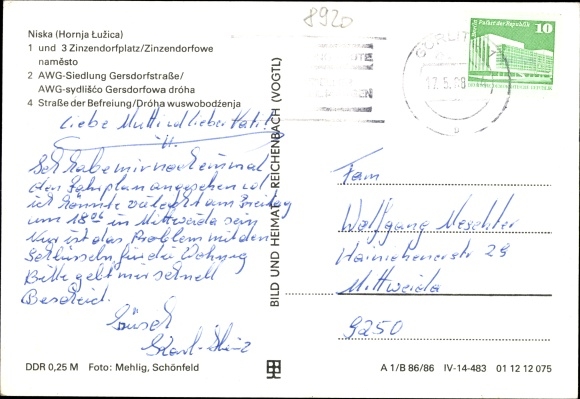 8920
Niska (Hornja Łužica)
1 und 3 Zinzendorfplatz/Zinzendorfowe
naměsto
2 AWG-Siedlung Gersdorfstraße/
AWG-sydlišćo Gersdorfowa dróha
4 Straße der Befreiung/Dróha wuswobodźenja
Liebe Mutti und lieber Vati!
Ich habe mir noch einmal
den Fahrplan angesehen und
ich könnte am Freitag
um 18 06 in Mittweida sein
Nur ist das Problem mit den
Schlüsseln für die Wohnung
Bitte gebt mir schnell
Bescheid.
Grüsch
Karl-Heinz
BILD UND HEIMAT REICHENBACH (VOGTL)
GÖRLITZ
17.5.88
Berlin, Palast der Republik
10
Fam
Wolfgang
Hainichenerstr 29
Mittweida
9250
DDR 0,25 M Foto: Mehlig, Schönfeld
A 1/B 86/86 IV-14-483 01 12 12 075